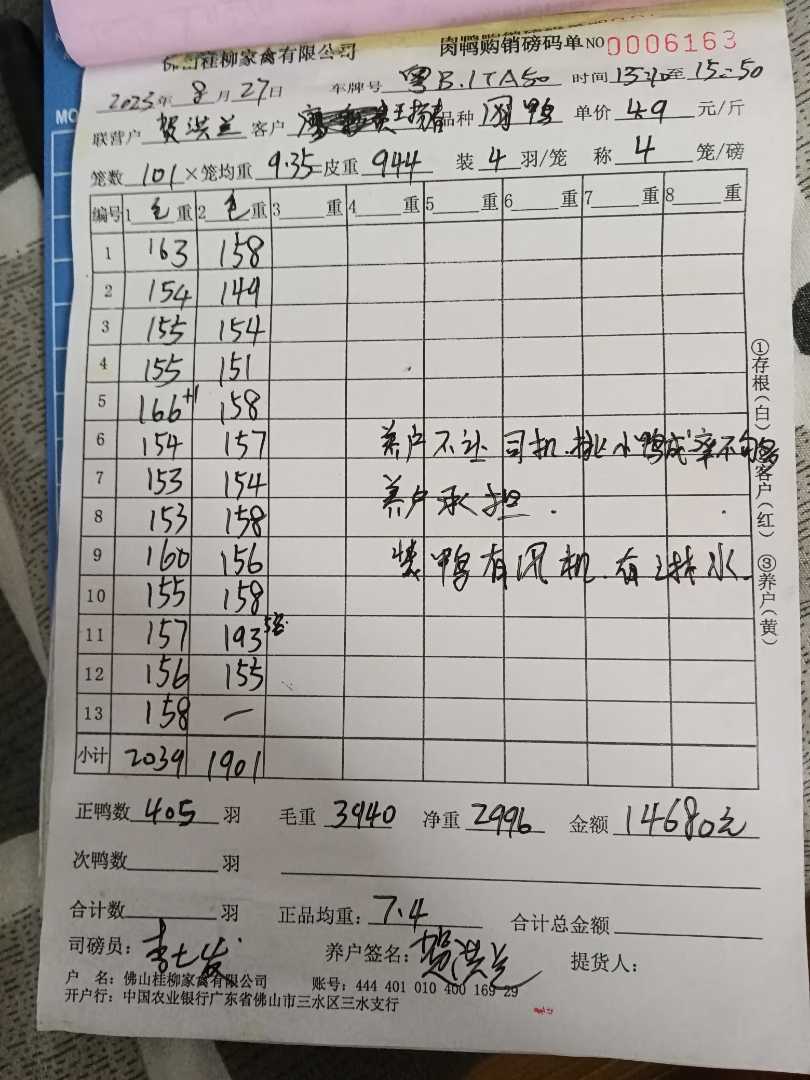 佛山桂柳家禽有限公司 肉鸭购销磅码单 NO 0006163
2023年 8月27日 车牌号 粤B.1TA50 时间 13:20至15:50
联营户 贺洪兰 客户 品种 鸭 单价 4.9 元/斤
笼数 101 ×笼均重 9.35 =皮重 944 装 4 羽/笼 称 4 笼/磅
编号 1 毛 重 2 毛 重 3 重 4 重 5 重 6 重 7 重 8 重
1 163 158
2 154 149
3 155 154
4 155 151
5 166+1 158
6 154 157 养户不补司机.挑小鸭成率不
7 153 154 养户承担.
8 153 158
9 160 156 装鸭有风机.有水.
10 155 158
11 157 193 5笼
12 156 155
13 158 —
小计 2039 1901
①存根(白) 客户(红) ③养户(黄)
正鸭数 405 羽 毛重 3940 净重 2996 金额 14680元
次鸭数 羽
合计数 羽 正品均重: 7.4 合计总金额
司磅员: 养户签名: 贺洪兰 提货人:
户 名: 佛山桂柳家禽有限公司 账号: 444 401 010 400 169 29
开户行: 中国农业银行广东省佛山市三水区三水支行